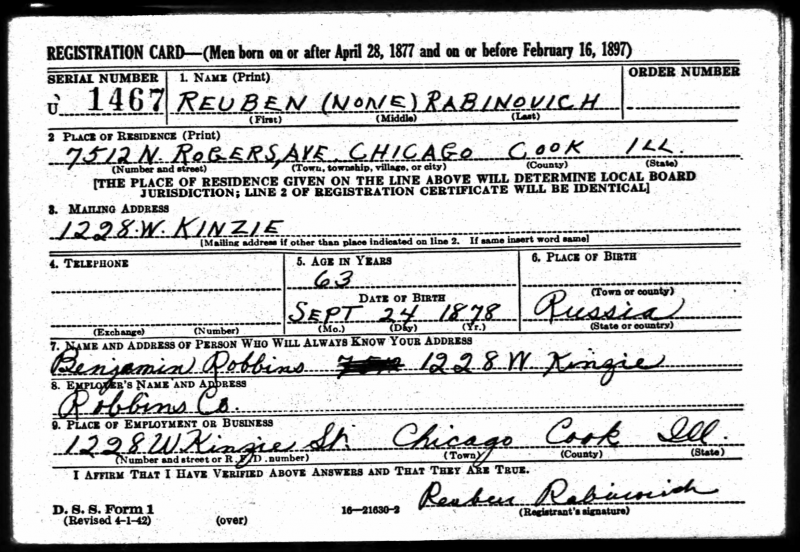 REGISTRATION CARD—(Men born on or after April 28, 1877 and on or before February 16, 1897)
SERIAL NUMBER 1. NAME (Print) ORDER NUMBER
U 1467 REUBEN (NONE) RABINOVICH
(First) (Middle) (Last)
2 PLACE OF RESIDENCE (Print)
7512 N. ROGERS, AVE CHICAGO COOK ILL.
(Number and street) (Town, township, village, or city) (County) (State)
[THE PLACE OF RESIDENCE GIVEN ON THE LINE ABOVE WILL DETERMINE LOCAL BOARD
JURISDICTION; LINE 2 OF REGISTRATION CERTIFICATE WILL BE IDENTICAL]
3. MAILING ADDRESS
1228. W. KINZIE
[Mailing address if other than place indicated on line 2. If same insert word same]
4. TELEPHONE 5. AGE IN YEARS 6. PLACE OF BIRTH
63
(Town or county)
DATE OF BIRTH
SEPT 24 1878 Russia
(Exchange) (Number) (Mo.) (Day) (Yr.) (State or country)
7. NAME AND ADDRESS OF PERSON WHO WILL ALWAYS KNOW YOUR ADDRESS
Benjamin Robbins 1228 W Kinzie
8. EMPLOYER'S NAME AND ADDRESS
Robbins Co.
9. PLACE OF EMPLOYMENT OR BUSINESS
1228 W Kinzie St. Chicago Cook Ill.
(Number and street or R. F. D. number) (Town) (County) (State)
I AFFIRM THAT I HAVE VERIFIED ABOVE ANSWERS AND THAT THEY ARE TRUE.
Reuben Rabinovich
D. S. S. Form 1
(Revised 4-1-42) (over) 16—21630-2 (Registrant's signature)